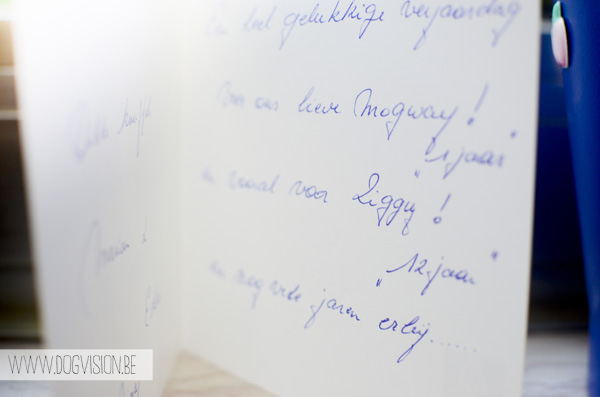 Een heel gelukkige verjaardag
Voor ons lieve Mogway!
"1 jaar"
en vooral voor Ziggy!
"12 jaar"
en nog vele jaren erbij......
WWW.DOGVISION.BE